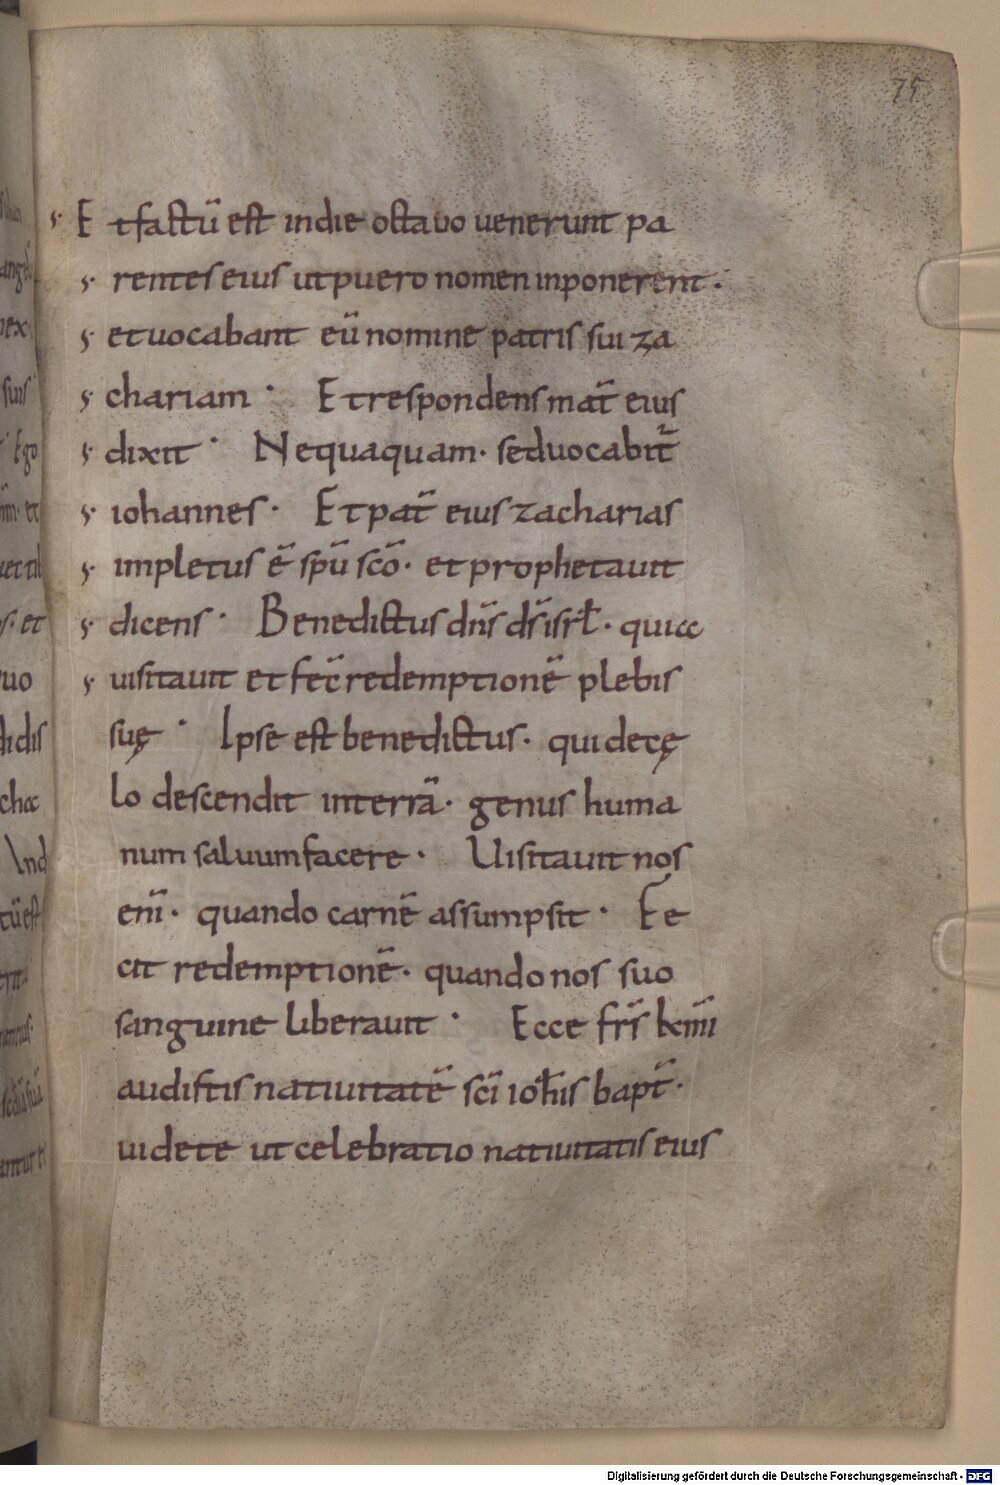 75
Et factū est in die octavo uenerunt pa
rentes eius ut puero nomen inponerent·
et uocabant eū nomine patris sui za
chariam· Et respondens mat̄ eius
dixit· Nequaquam· sed uocabit̄
iohannes· Et pat̄ eius zacharias
impletus ē sp̄u sc̄o· et prophetauit
dicens· Benedictus dn̄s ds̄ isrł· quia
uisitauit et fec̄ redemptionē plebis
suę· Ipse est benedictus· qui de cę
lo descendit in terrā· genus huma
num saluum facere· Uisitauit nos
eni̅· quando carnē assumpsit· Fe
cit redemptionē· quando nos suo
sanguine liberauit· Ecce fr̄s km̄i
audistis natiuitatē sc̄i ioħis bapt̄·
uidete ut celebratio natiuitatis eius
Digitalisierung gefördert durch die Deutsche Forschungsgemeinschaft - DFG